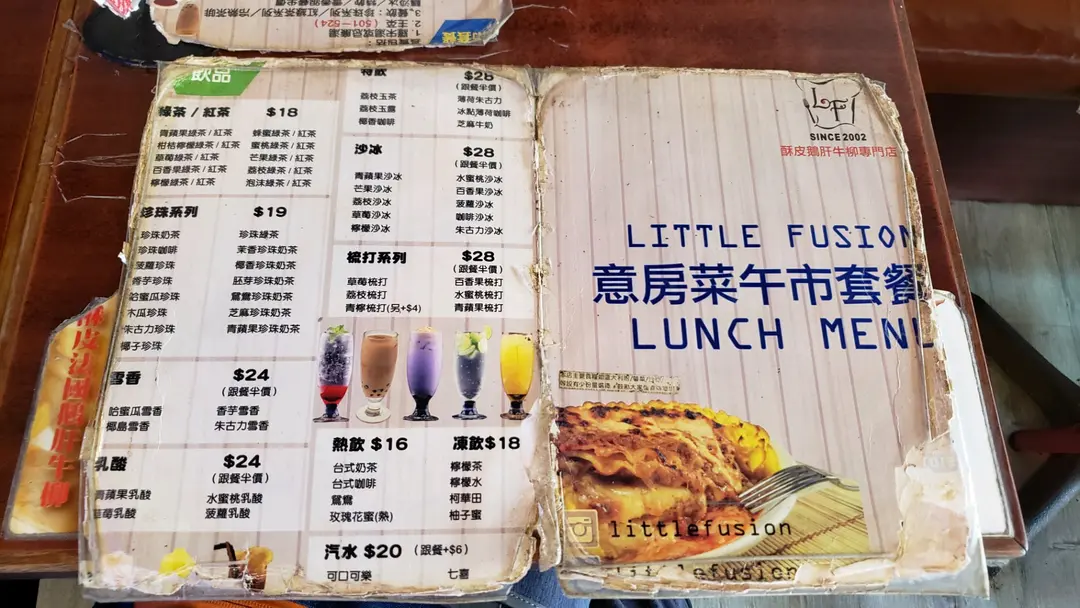 飲品
綠茶 / 紅茶 $18
青蘋果綠茶 / 紅茶 蜂蜜綠茶 / 紅茶
柑桔檸檬綠茶 / 紅茶 蜜桃綠茶 / 紅茶
草莓綠茶 / 紅茶 芒果綠茶 / 紅茶
百香果綠茶 / 紅茶 荔枝綠茶 / 紅茶
檸檬綠茶 / 紅茶 泡沫綠茶 / 紅茶
珍珠系列 $19
珍珠奶茶 珍珠綠茶
珍珠咖啡 茉香珍珠奶茶
菠蘿珍珠 椰香珍珠奶茶
香芋珍珠 胚芽珍珠奶茶
哈蜜瓜珍珠 鴛鴦珍珠奶茶
木瓜珍珠 芝麻珍珠奶茶
朱古力珍珠 青蘋果珍珠奶茶
椰子珍珠
雪香 $24
(跟餐半價)
哈蜜瓜雪香 香芋雪香
椰島雪香 朱古力雪香
乳酸 $24
(跟餐半價)
青蘋果乳酸 水蜜桃乳酸
草莓乳酸 菠蘿乳酸
特飲 $28
(跟餐半價)
荔枝玉茶 薄荷朱古力
荔枝玉露 冰點薄荷咖啡
椰香咖啡 芝麻牛奶
沙冰 $28
(跟餐半價)
青蘋果沙冰 水蜜桃沙冰
芒果沙冰 百香果沙冰
荔枝沙冰 菠蘿沙冰
草莓沙冰 咖啡沙冰
檸檬沙冰 朱古力沙冰
梳打系列 $28
(跟餐半價)
草莓梳打 百香果梳打
荔枝梳打 水蜜桃梳打
青檸梳打(另+$4) 青蘋果梳打
熱飲 $16 凍飲 $18
台式奶茶 檸檬茶
台式咖啡 檸檬水
鴛鴦 柯華田
玫瑰花蜜(熱) 柚子蜜
汽水 $20 (跟餐+$6)
可口可樂 七喜
LFI
SINCE 2002
酥皮鵝肝牛柳專門店
LITTLE FUSION
意房菜午市套餐
LUNCH MENU
littlefusion
littlefusion
2. 主菜 (501－524)